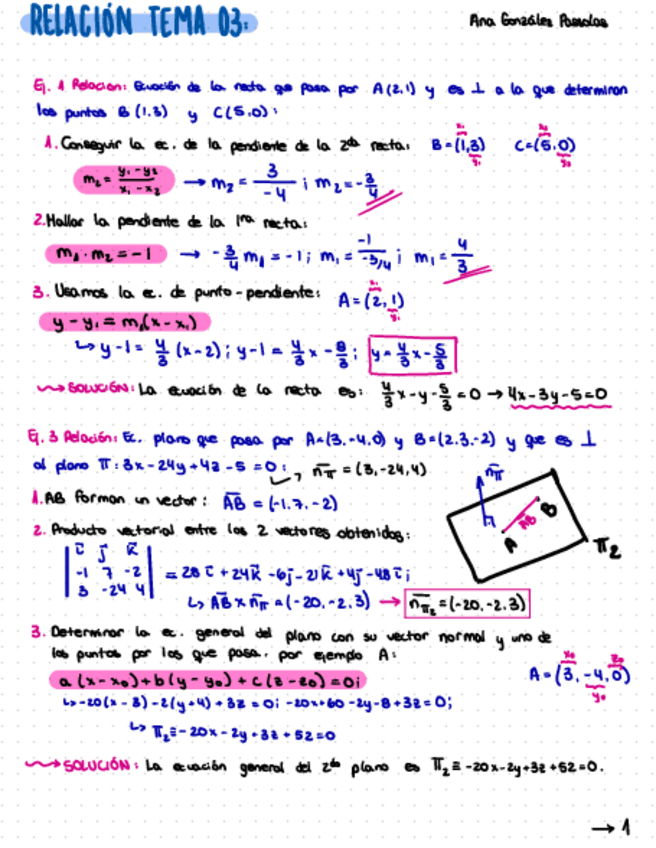 RELACIÓN TEMA 03:
Ana González
Ej. 1 Relacion: Ecuación de la recta que pasa por A(2,1) y es ⊥ a la que determinan
los puntos B(1,3) y C(5,0):
1. Conseguir la ec. de la pendiente de la 2da recta: B=(1,3) C=(5,0)
x₁ y₁ x₂ y₂
m₂ = (y₁-y₂)/(x₁-x₂) → m₂ = 3/-4 ; m₂ = -3/4
2. Hallar la pendiente de la 1ra recta:
m₁ · m₂ = -1 → -3/4 m₁ = -1; m₁ = -1/(-3/4) ; m₁ = 4/3
3. Usamos la ec. de punto-pendiente: A=(2,1)
x₁ y₁
y-y₁ = m₁(x-x₁)
↳ y-1 = 4/3 (x-2); y-1 = 4/3 x - 8/3; y = 4/3 x - 5/3
SOLUCIÓN: La ecuación de la recta es: 4/3 x-y-5/3=0 → 4x-3y-5=0
Ej. 3 Relación: Ec. plano que pasa por A=(3,-4,0) y B=(2,3,-2) y que es ⊥
al plano π: 3x-24y+4z-5=0: nπ = (3,-24,4)
1. AB forman un vector: AB = (-1,7,-2)
2. Producto vectorial entre los 2 vectores obtenidos:
nπ
AB
A
B
π₂
| i j k |
| -1 7 -2 | = 28i + 24k - 6j - 21k + 4j - 48i;
| 3 -24 4 |
↳ AB x nπ = (-20,-2,3) → nπ₂ = (-20,-2,3)
3. Determinar la ec. general del plano con su vector normal y uno de
los puntos por los que pasa, por ejemplo A:
a(x-x₀)+b(y-y₀)+c(z-z₀)=0;
A=(3,-4,0)
x₀ y₀ z₀
↳ -20(x-3)-2(y+4)+3z=0; -20x+60-2y-8+3z=0;
↳ π₂≡-20x-2y+3z+52=0
SOLUCIÓN: La ecuación general del 2do plano es π₂≡-20x-2y+3z+52=0.
→ 1